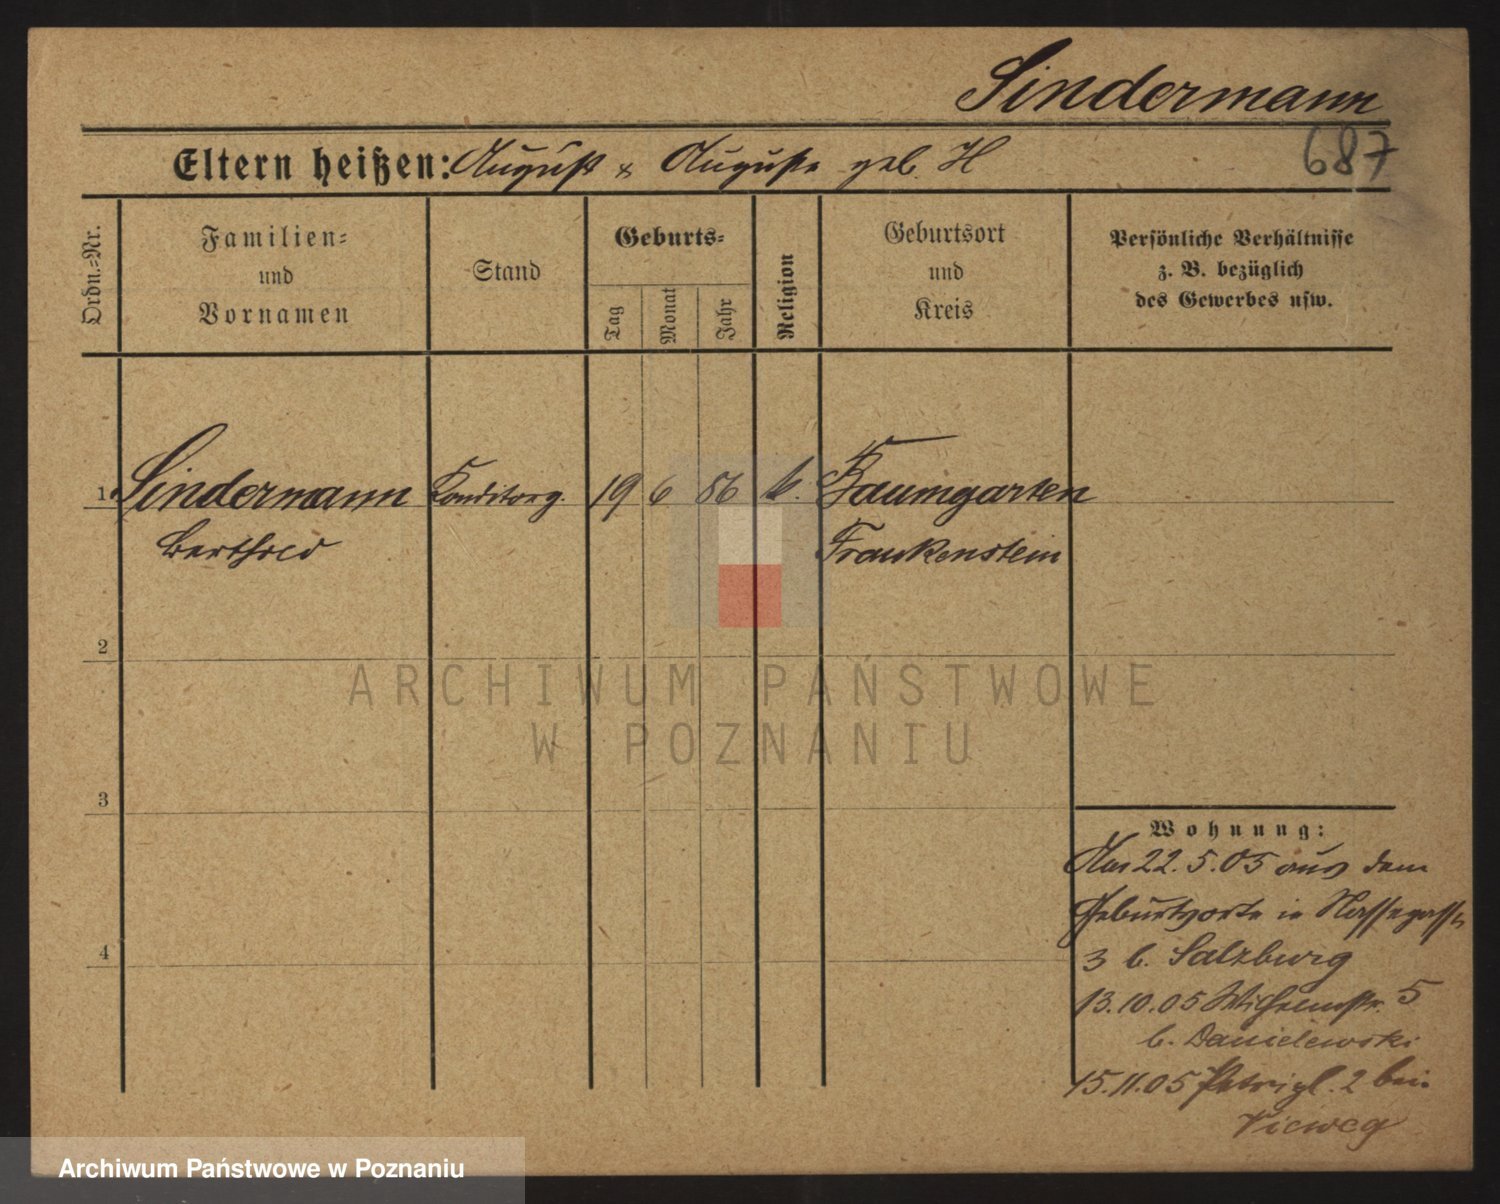 Sindermann
687
Eltern heißen: August & Auguste geb. H
Ordn.-Nr.
Familien-
und
Vornamen
Stand
Geburts-
Tag
Monat
Jahr
Religion
Geburtsort
und
Kreis
Persönliche Verhältnisse
z. B. bezüglich
des Gewerbes usw.
1. Sindermann Konditorg. 19 6 86 k. Baumgarten
Berthold Frankenstein
2
3
4
Wohnung:
22.5.05 aus dem
Geburtsorte in Wassergasse
3 b. Salzburg
13.10.05 Wilhelmstr. 5
b. Danielewski
15.11.05 Petripl. 2 bei
Vieweg
ARCHIWUM PAŃSTWOWE
W POZNANIU
Archiwum Państwowe w Poznaniu